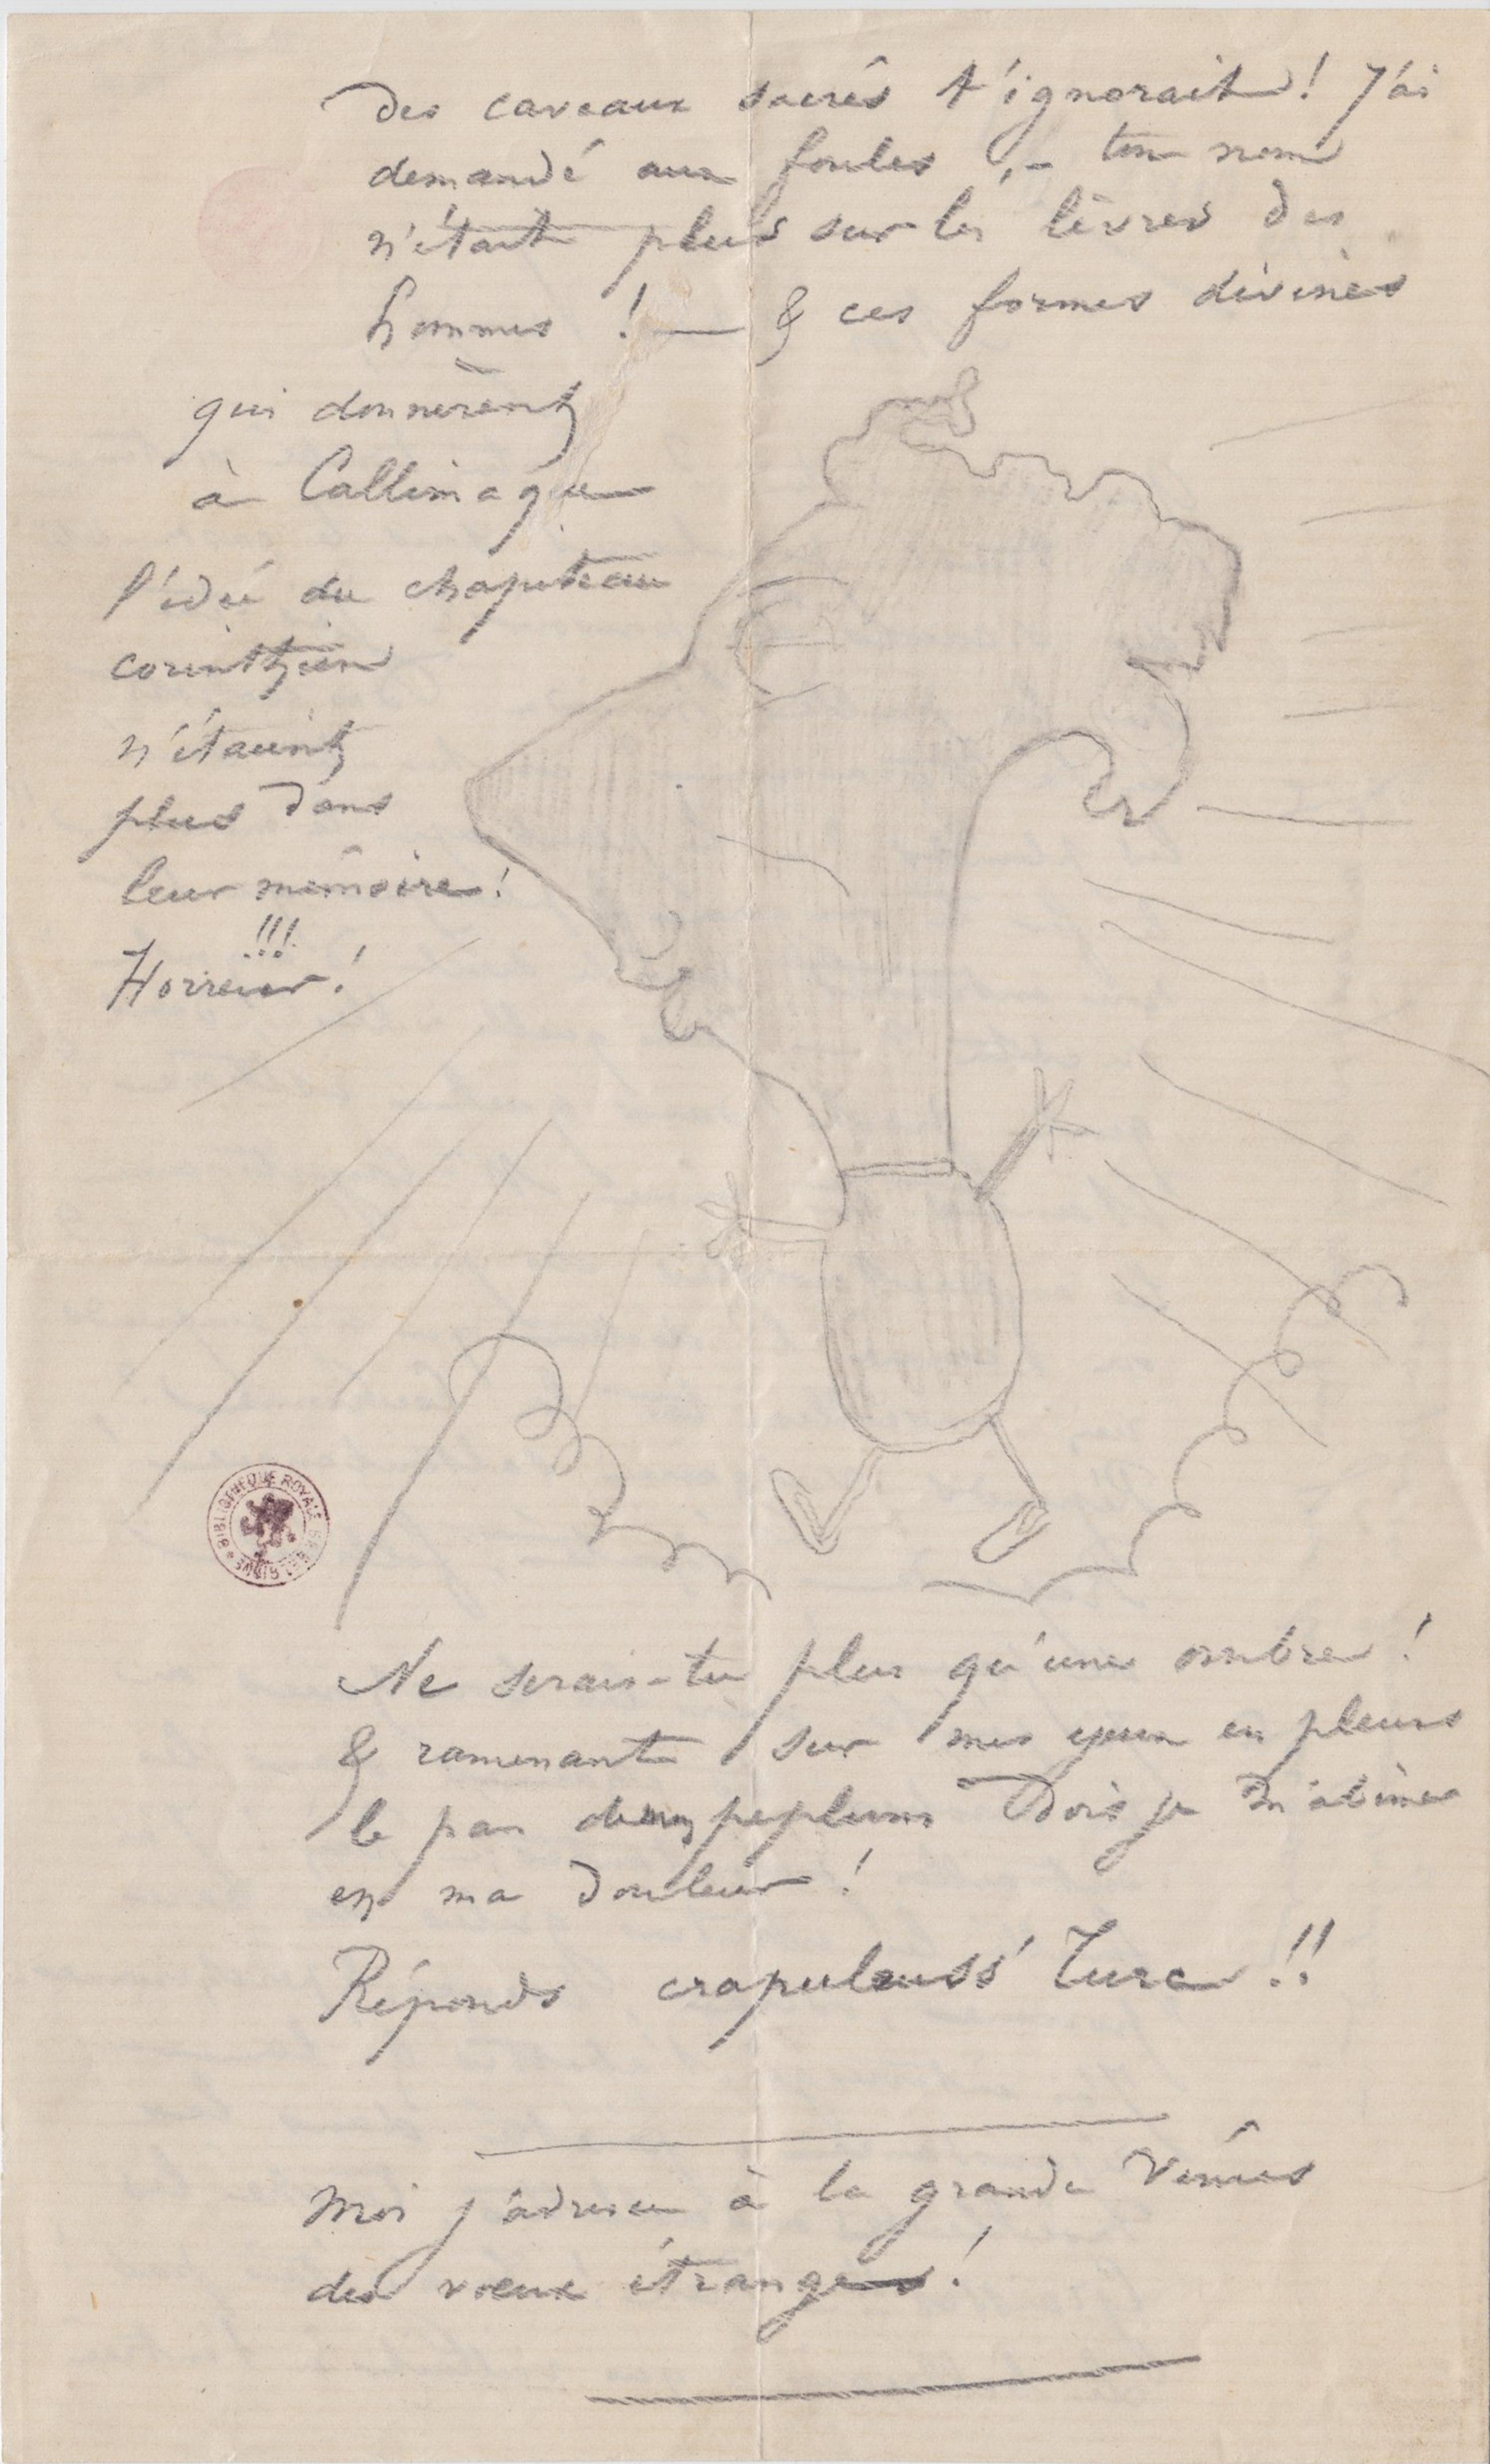 des caveaux sacrés t'ignorait! J'ai
demandé aux foules ,- ton nom
n'était plus sur les lèvres des
hommes ! — & ces formes divines
qui donnèrent
à Callimaque
l'idée du chapiteau
corinthien
n'étaient
plus dans
leur mémoire!
!!!
Horreur!
BIBLIOTHEQUE ROYALE DE BELGIQUE
Ne serais-tu plus qu'une ombre!
& ramenant sur mes yeux en pleurs
le pan de mon peplum Dois je m'abîmer
en ma douleur!
Réponds crapuleuss' Turc!!
Moi j'adresse à la grande Vénus
des vœux étranges!